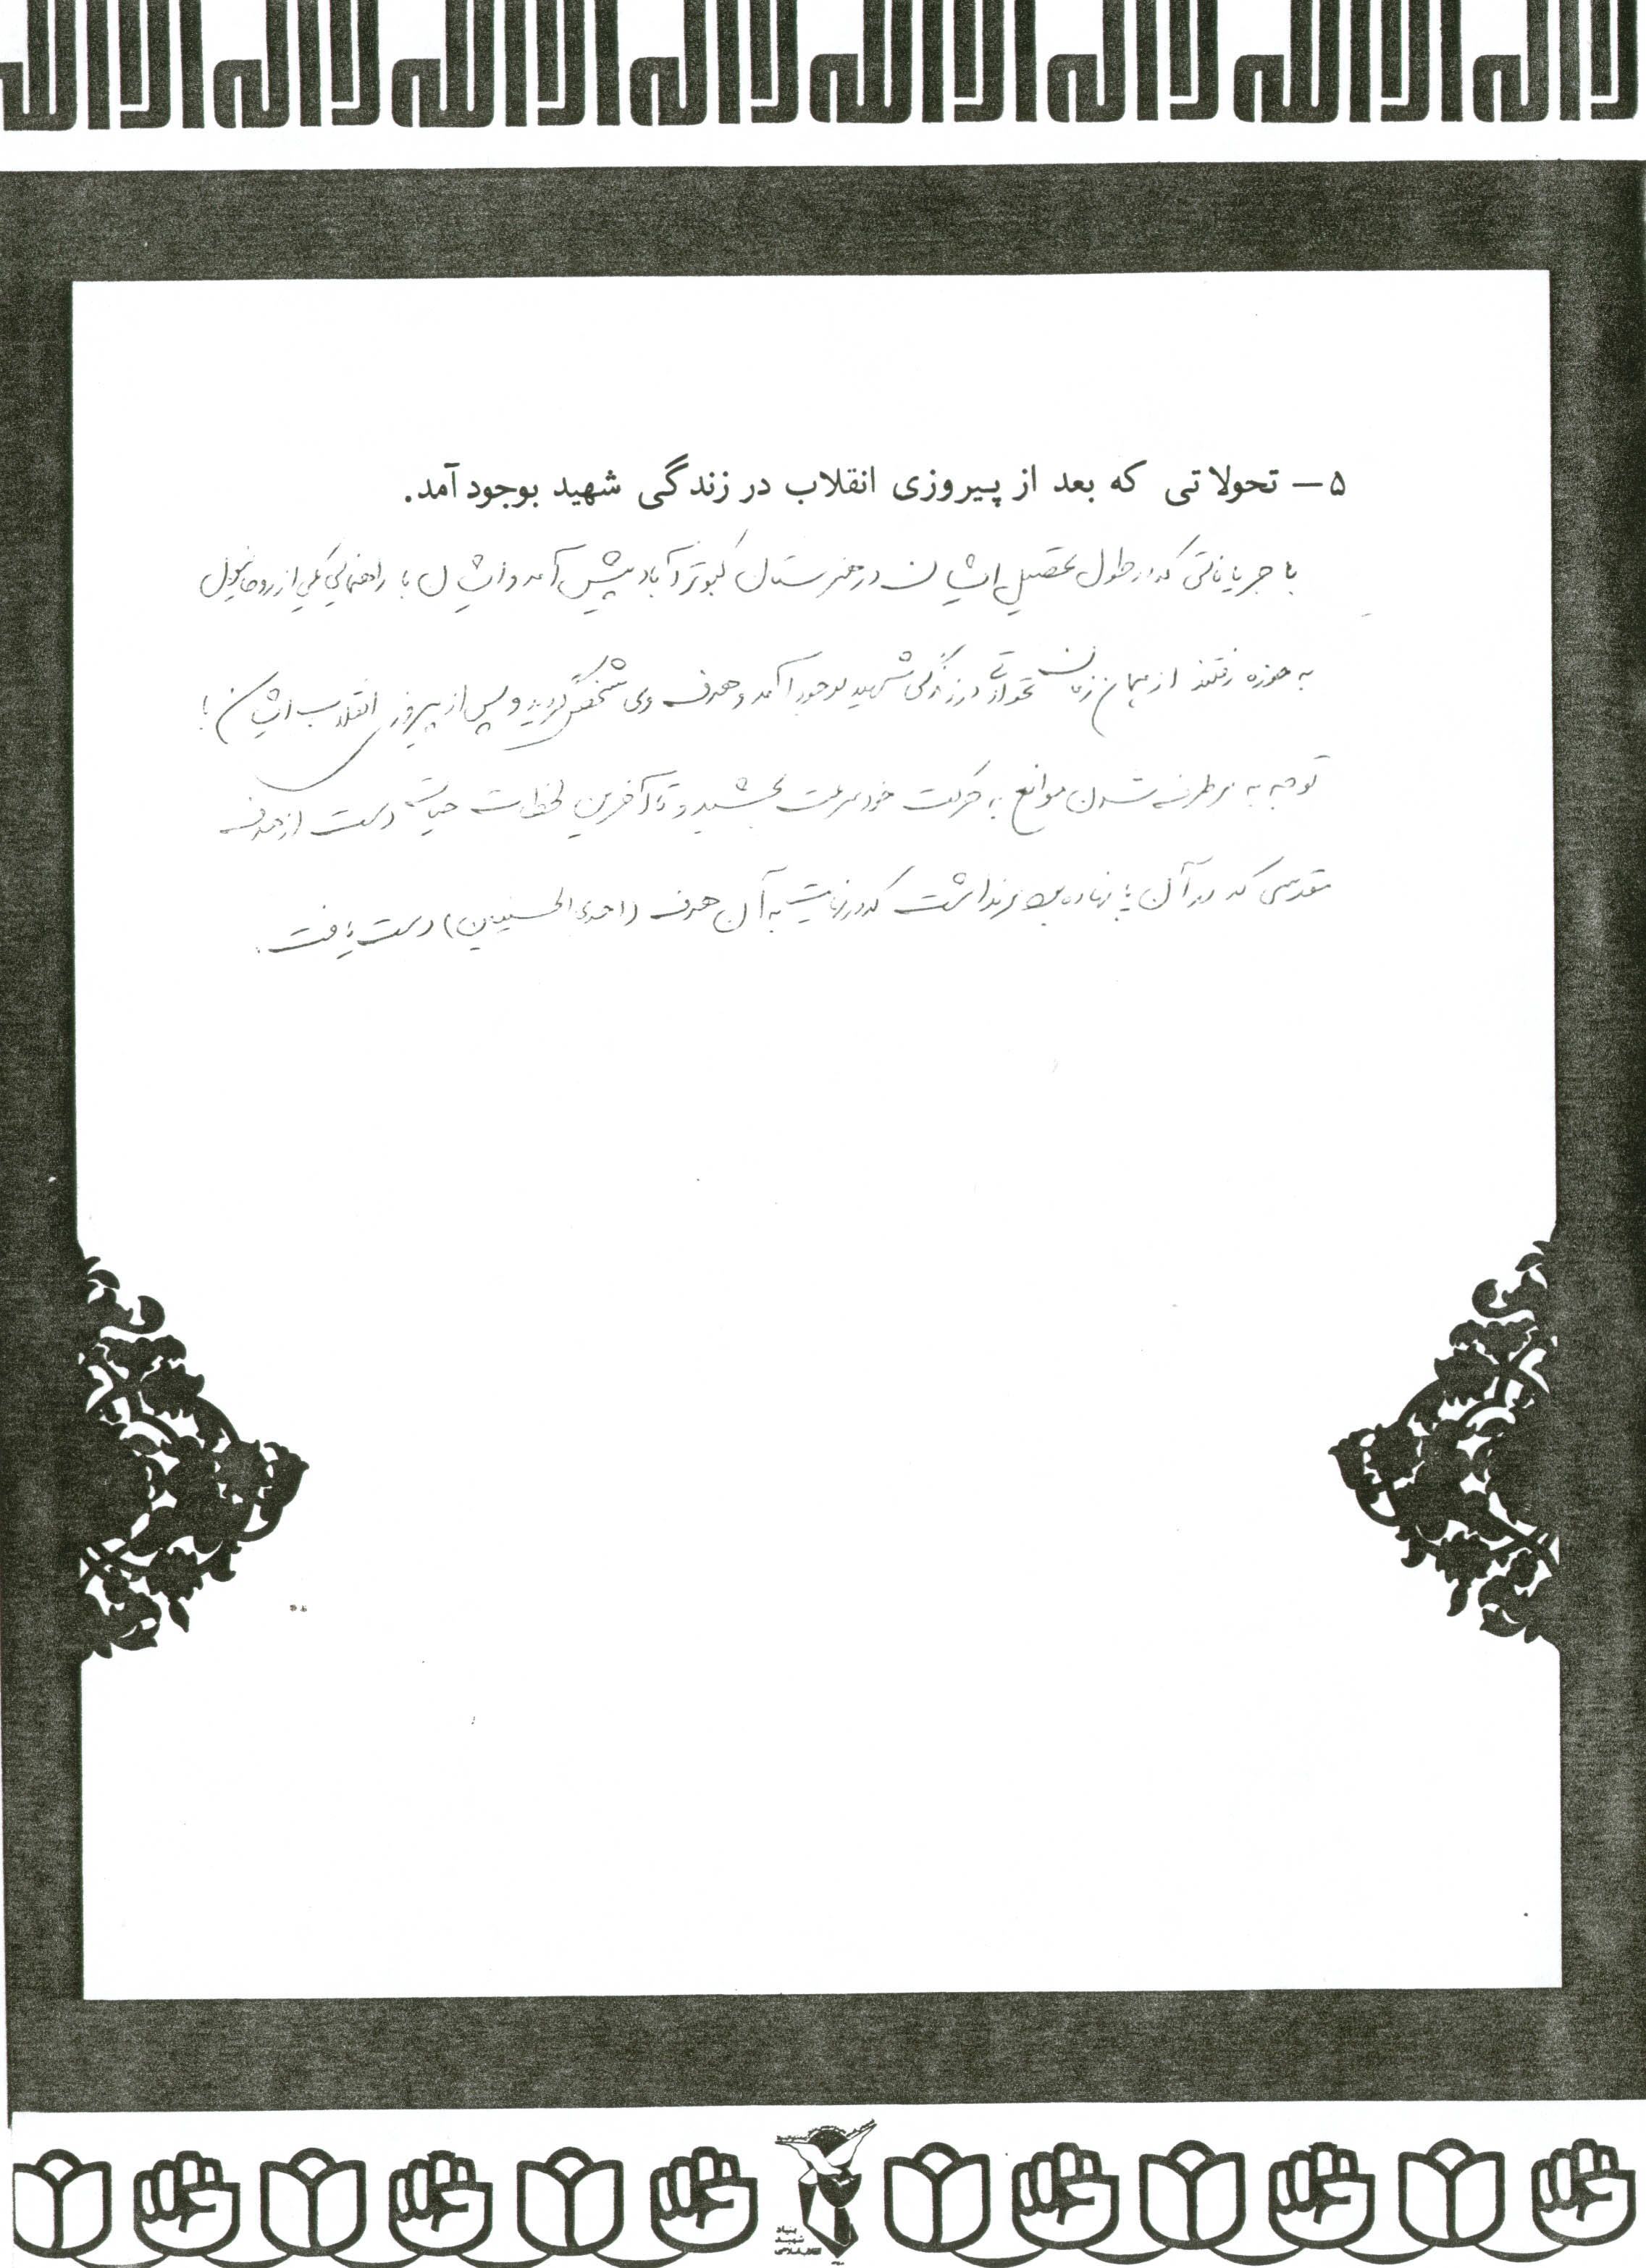 ۵ – تحولاتی که بعد از پیروزی انقلاب در زندگی شهید بوجود آمد.
با جریاناتی که در طول تحصیل ایشان در هنرستان کبوترآباد پیش آمد و ایشان با راهنمائی یکی از روحانیون
به حوزه رفتند از همان زمان تحولاتی در زندگی شهید بوجود آمد و هدف وی مشخص گردید و پس از پیروزی انقلاب ایشان با
توجه به برطرف شدن موانع به حرکت خود سرعت بخشید و تا آخرین لحظات حیات دست از هدف
مقدسی که در آن پا نهاده بود برنداشت که در نهایت به آن هدف (احدی الحسنیین) دست یافت.
بنیاد
شهید
انقلاب اسلامی